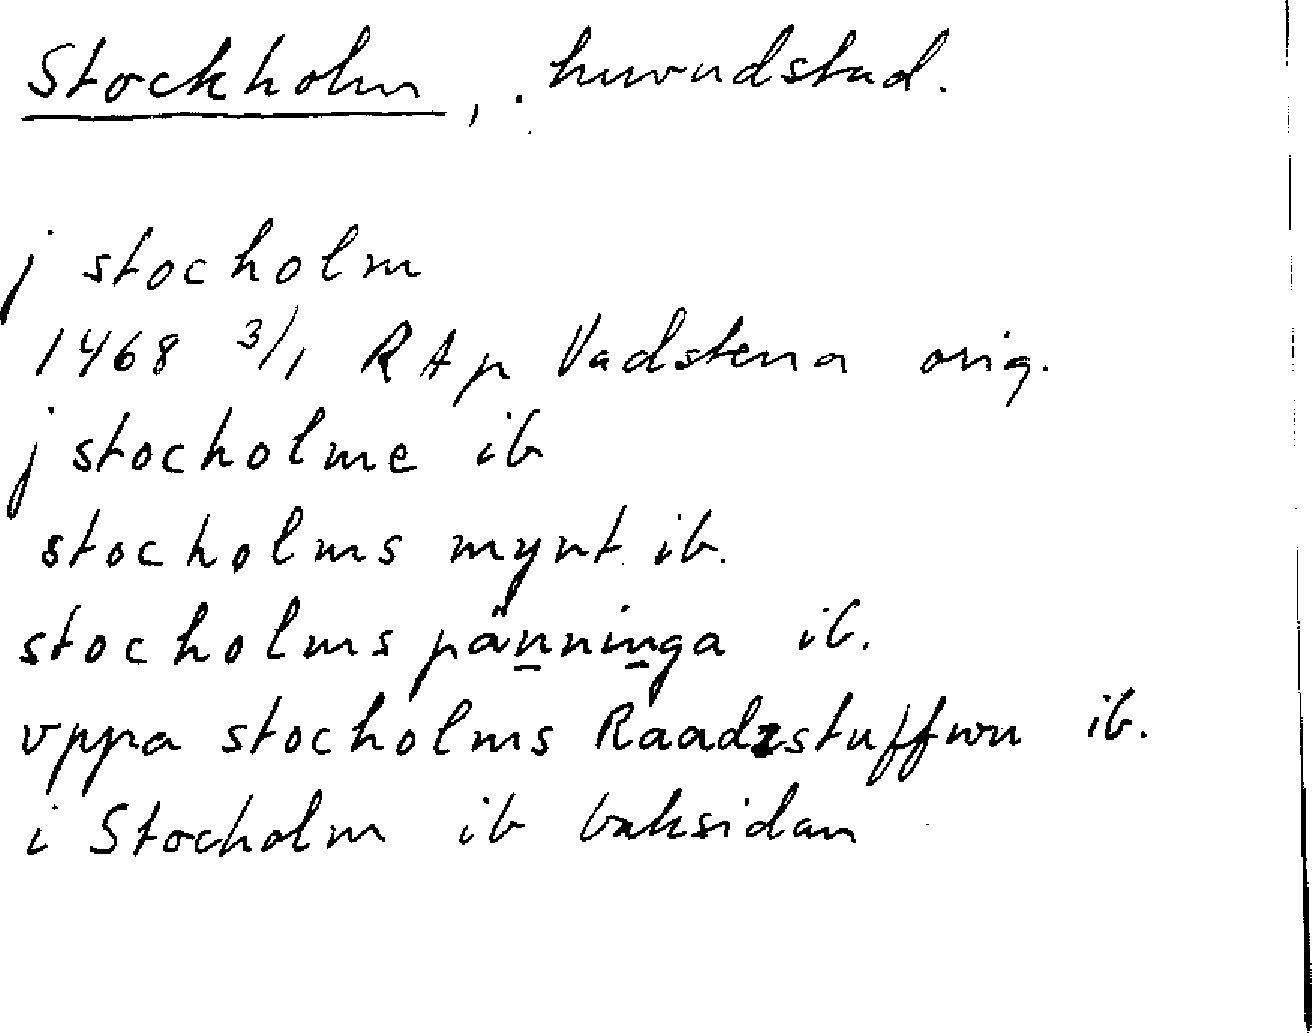 Stockholm, . huvudstad.
j stocholm
1468 3/1 RAp Vadstena orig.
j stocholme ib
stocholms mynt ib.
stocholms pänninga ib.
vppa stocholms Raadzstuffwu ib.
i Stocholm ib baksidan